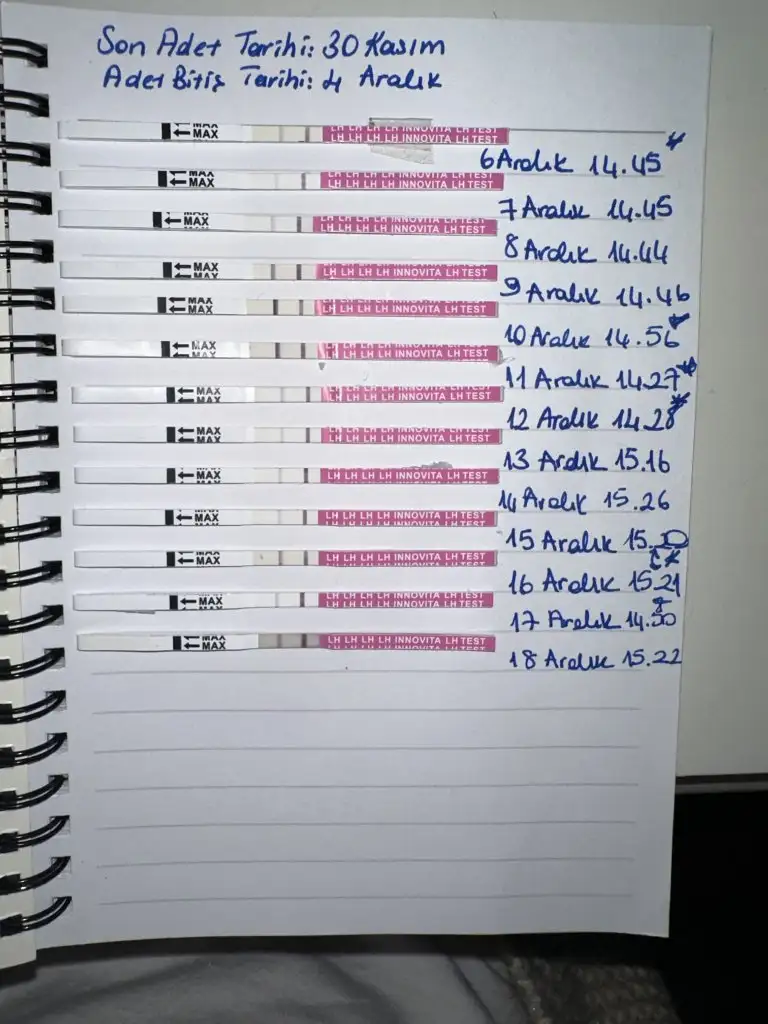 Son Adet Tarihi: 30 Kasım
Adet Bitiş Tarihi: 4 Aralık
MAX
MAX
LH LH LH LH INNOVITA LH TEST
LH LH LH LH INNOVITA LH TEST
6 Aralık 14.45
MAX
MAX
LH LH LH LH INNOVITA LH TEST
7 Aralık 14.45
MAX
LH LH LH LH INNOVITA LH TEST
8 Aralık 14.44
MAX
LH LH LH LH INNOVITA LH TEST
9 Aralık 14.46
MAX
MAX
LH LH LH LH INNOVITA LH TEST
10 Aralık 14.56
MAX
MAX
LH LH LH LH INNOVITA LH TEST
11 Aralık 14.27
MAX
LH LH LH LH INNOVITA LH TEST
12 Aralık 14.28
MAX
MAX
LH LH LH LH INNOVITA LH TEST
13 Aralık 15.16
MAX
LH LH LH LH INNOVITA LH TEST
14 Aralık 15.26
MAX
LH LH LH LH INNOVITA LH TEST
15 Aralık
MAX
LH LH LH LH INNOVITA LH TEST
16 Aralık 15.21
MAX
LH LH LH LH INNOVITA LH TEST
17 Aralık
MAX
MAX
LH LH LH LH INNOVITA LH TEST
18 Aralık 15.22